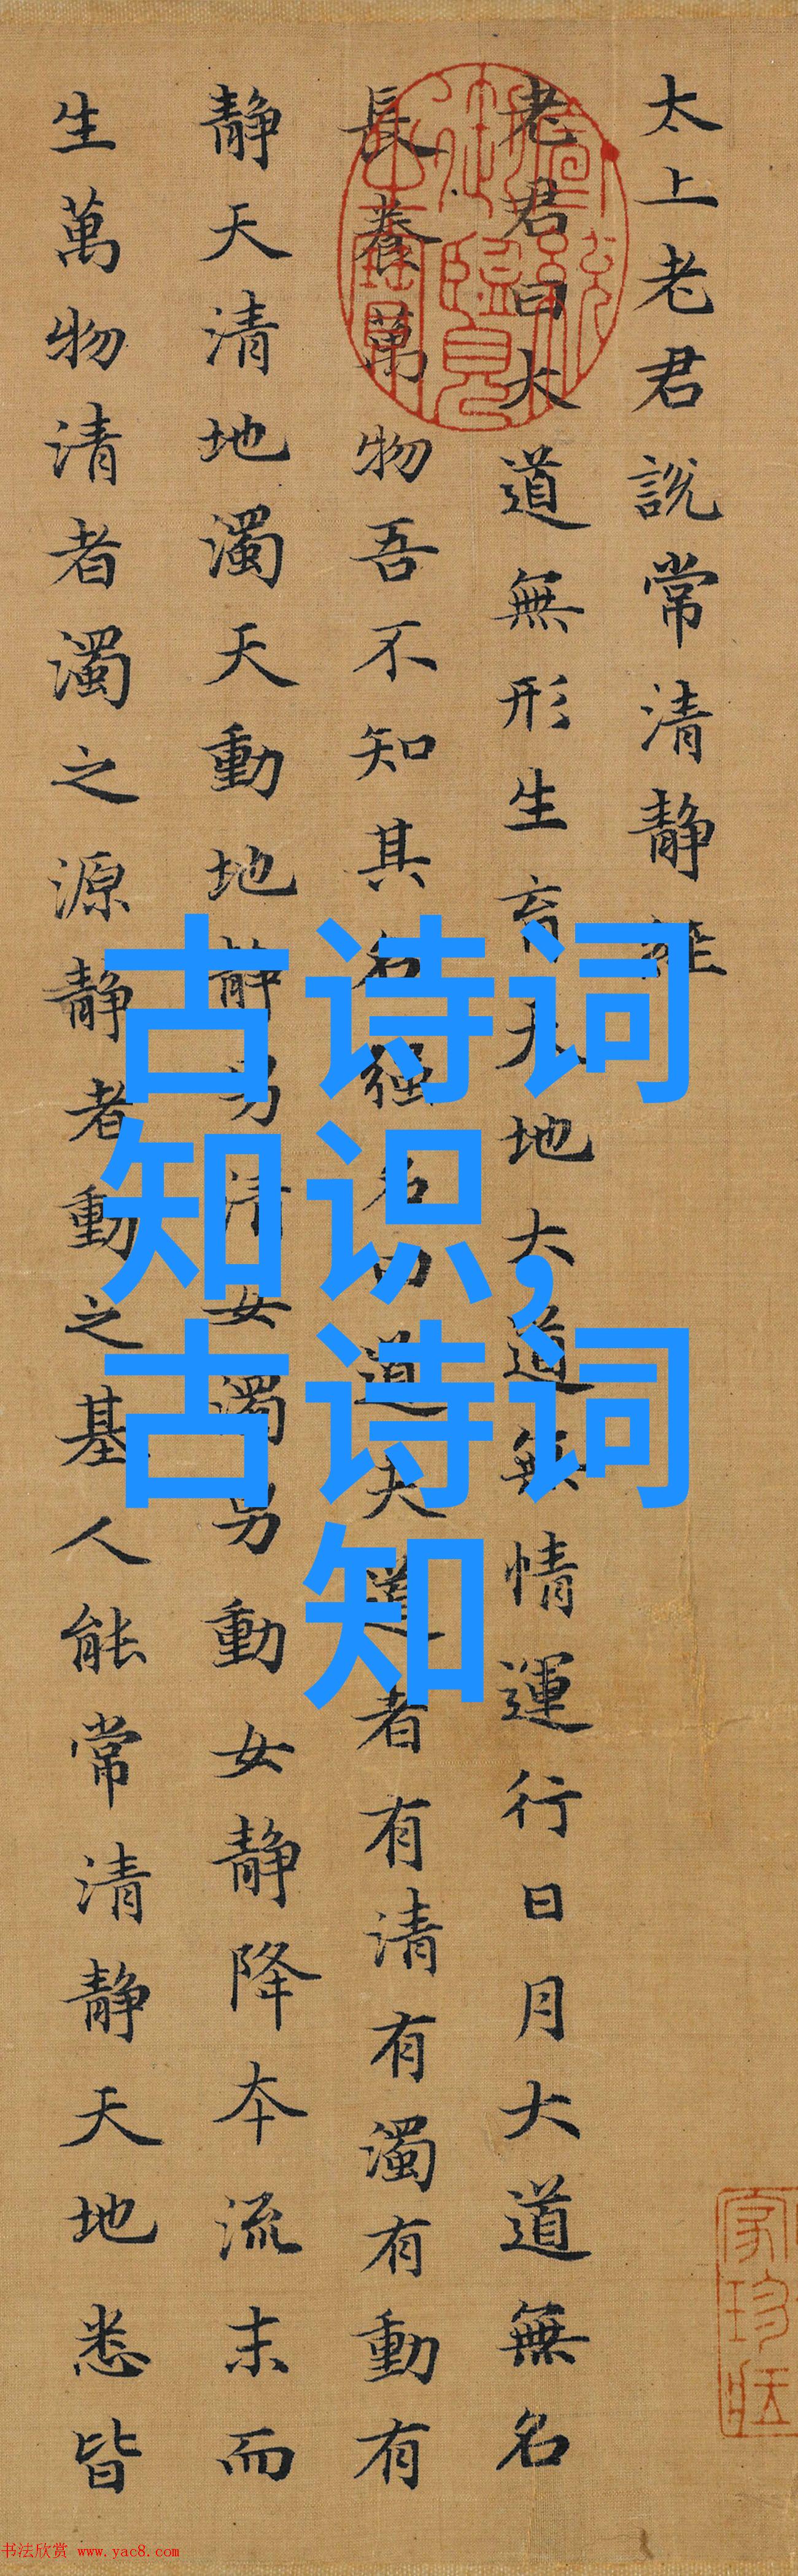 太上老君說常清靜經
老君曰大道無形生育天地大道無情運行日月大道無名
長養萬物吾不知其名强名曰道夫道者有清有濁有動有
靜天清地濁天動地靜男清女濁男動女靜降夲流末而
生萬物清者濁之源靜者動之基人能常清靜天地悉皆
古诗词
知识,
古诗词
知
書法欣赏 www.yac8.com